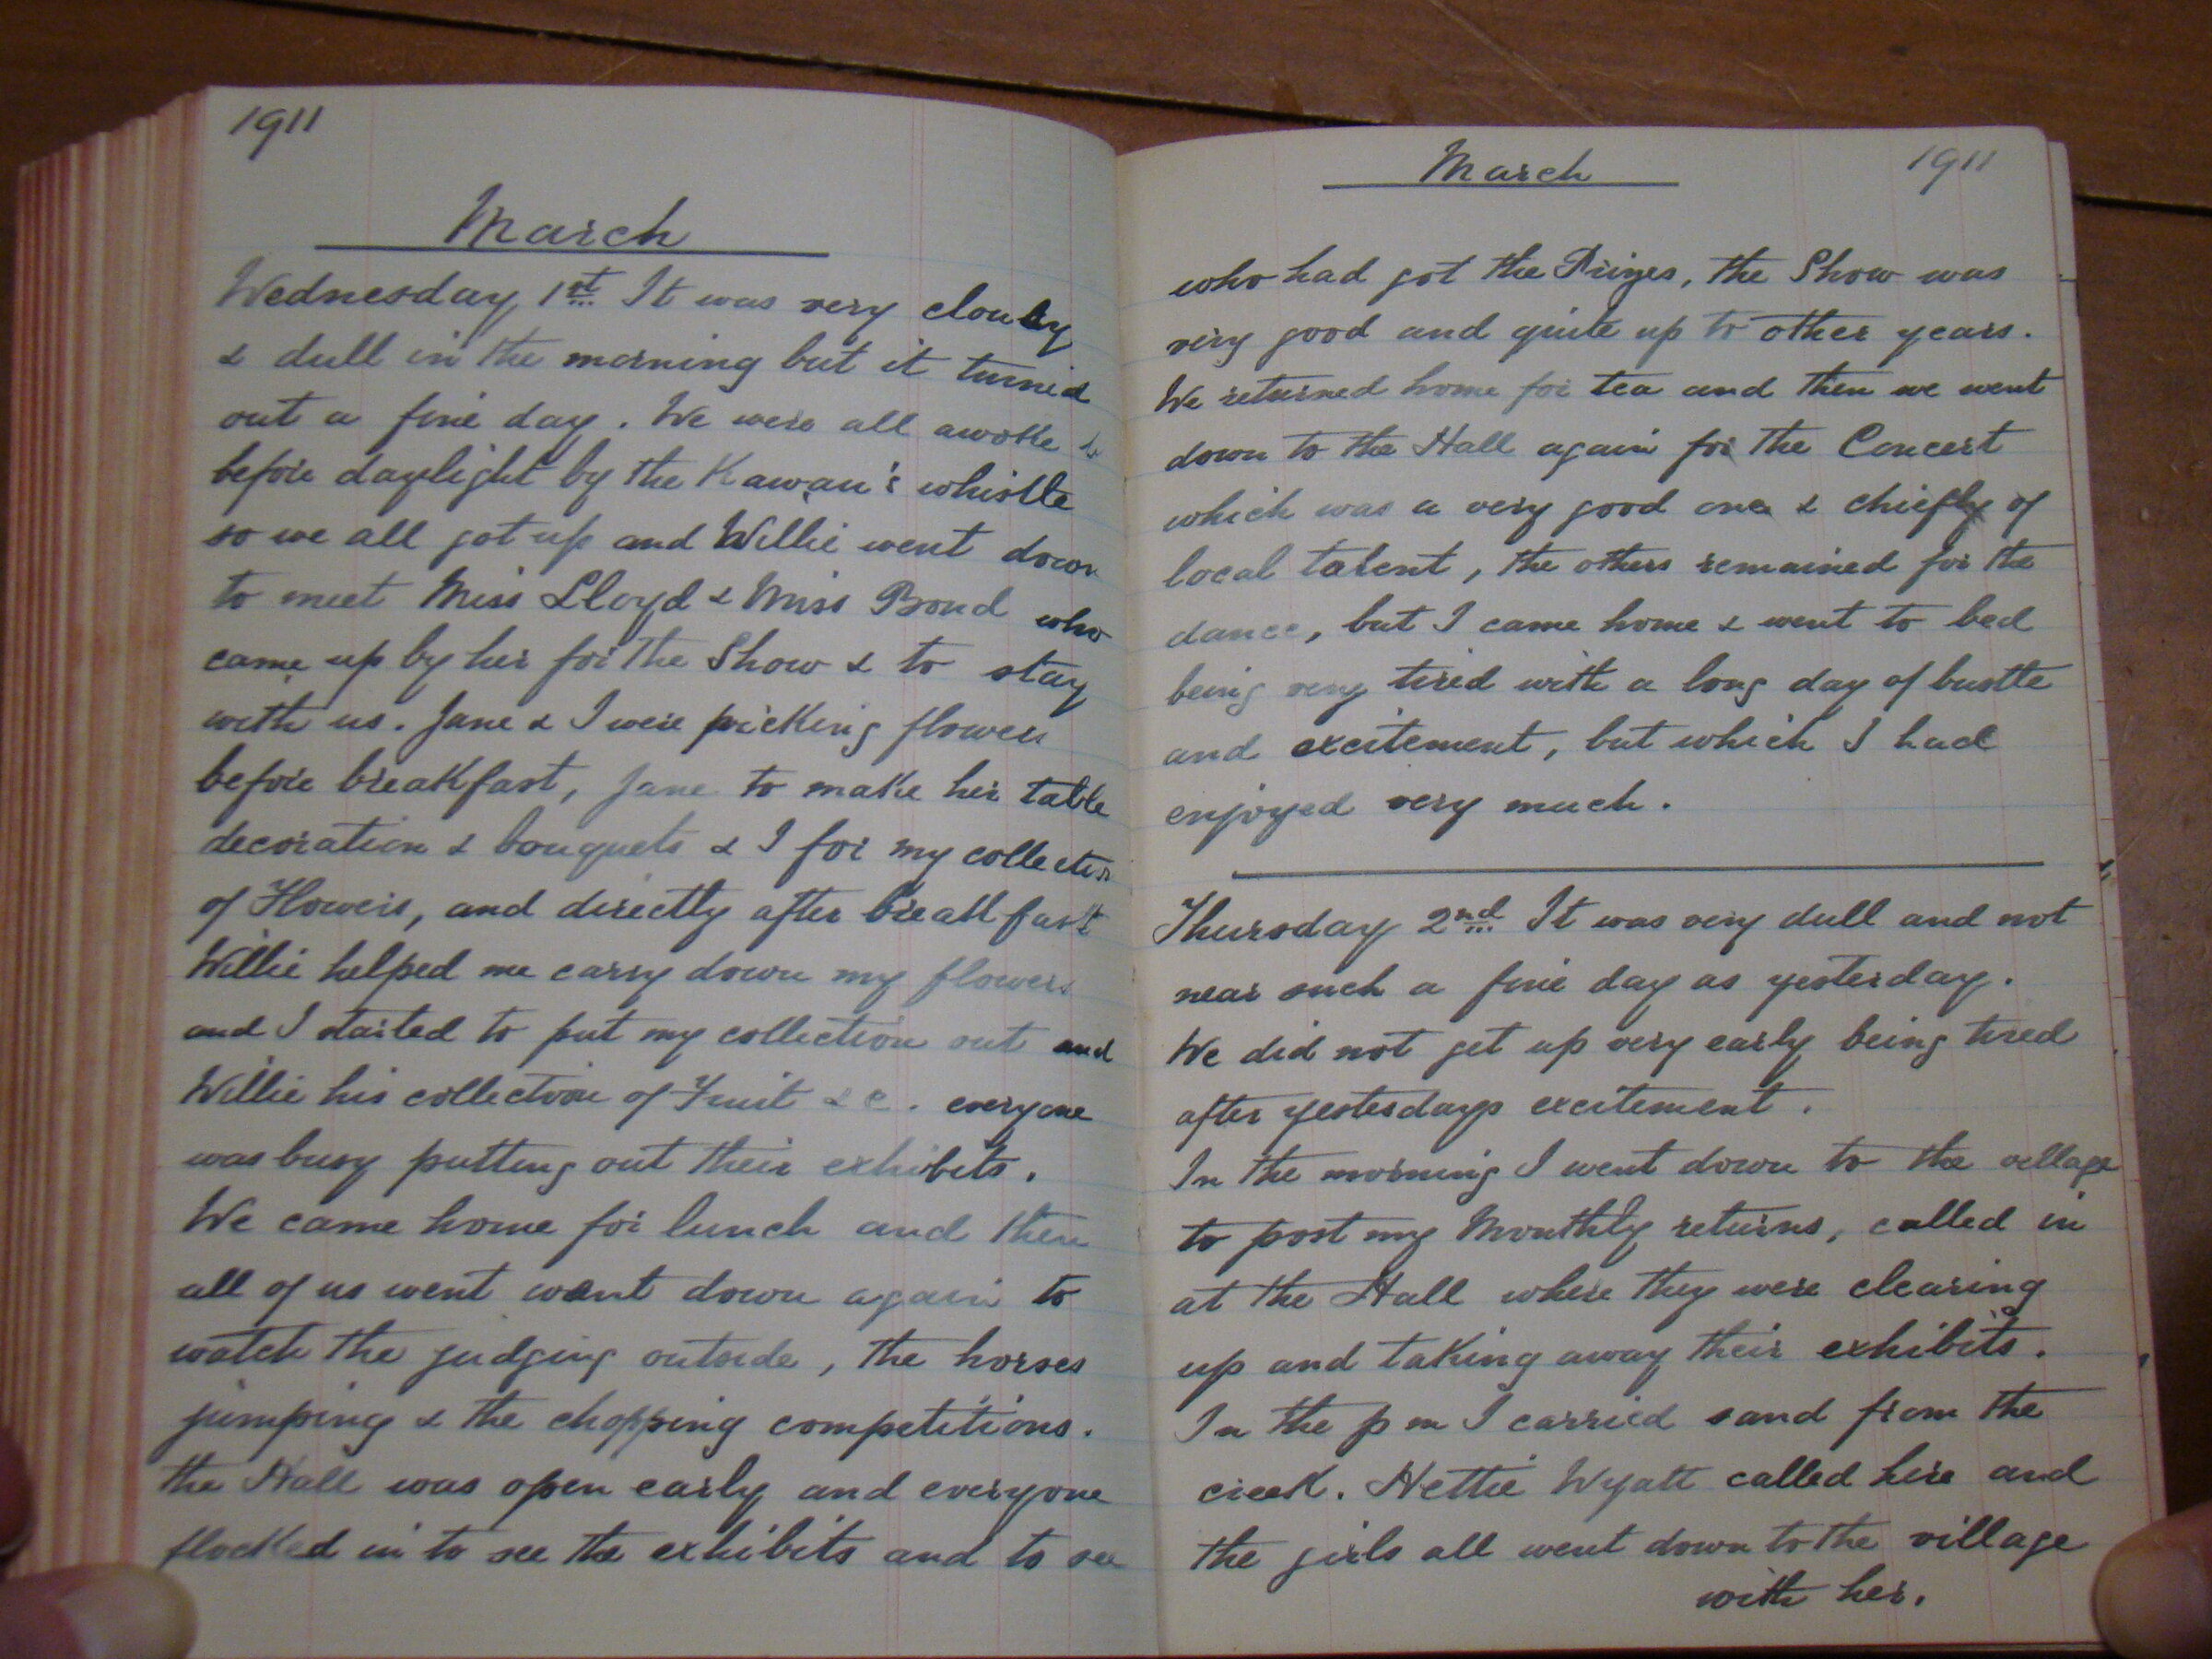 1911
March
Wednesday 1st It was very cloudy
& dull in the morning but it turned
out a fine day. We were all awoke
before daylight by the Kawau's whistle
so we all got up and Willie went down
to meet Miss Lloyd & Miss Bond who
came up by her for the Show & to stay
with us. Jane & I were picking flowers
before breakfast, Jane to make her table
decoration & bouquets & I for my collection
of Flowers, and directly after breakfast
Willie helped me carry down my flowers
and I started to put my collection out and
Willie his collection of Fruit &c. everyone
was busy putting out their exhibits.
We came home for lunch and then
all of us went went down again to
watch the judging outside, the horses
jumping & the chopping competitions.
the Hall was open early and everyone
flocked in to see the exhibits and to see
March 1911
who had got the Prizes, the Show was
very good and quite up to other years.
We returned home for tea and then we went
down to the Hall again for the Concert
which was a very good one & chiefly of
local talent, the others remained for the
dance, but I came home & went to bed
being very tired with a long day of bustle
and excitement, but which I had
enjoyed very much.
Thursday 2nd It was very dull and not
near such a fine day as yesterday.
We did not get up very early being tired
after yesterdays excitement.
In the morning I went down to the village
to post my Monthly returns, called in
at the Hall where they were clearing
up and taking away their exhibits.
In the p m I carried sand from the
creek. Nettie Wyatt called here and
the girls all went down to the village
with her.